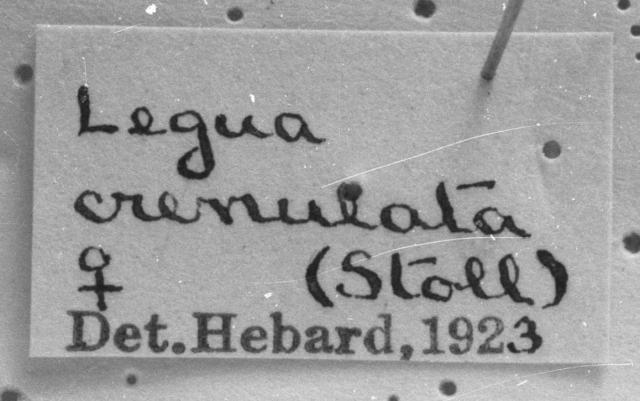 Legua
crenulata
♀ (Stoll)
Det. Hebard, 1923